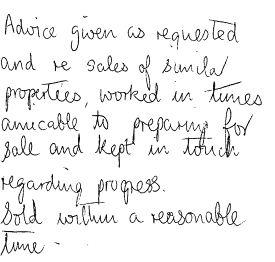 Advice given as requested
and re sales of similar
properties, worked in times
amicable to preparing for
sale and kept in touch
regarding progress.
Sold within a reasonable
time -